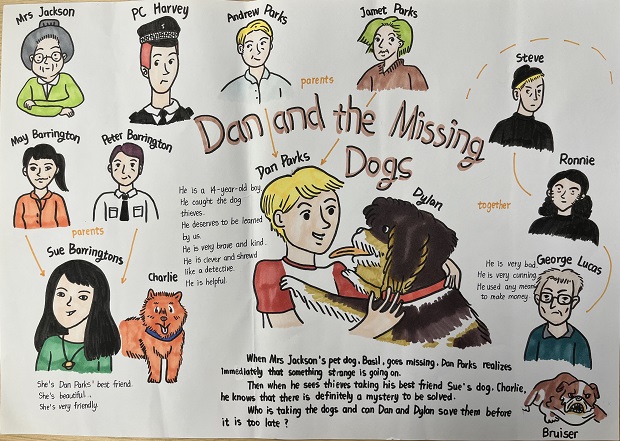 Mrs Jackson
PC Harvey
Andrew Parks
Jamet Parks
parents
Steve
Dan and the Missing
Dogs
May Barrington
Peter Barrington
parents
Dan Parks
Dylan
Ronnie
together
He is a 14-year-old boy.
He caught the dog
thieves.
He deserves to be learned
by us.
He is very brave and kind.
He is clever and shrewd
like a detective.
He is helpful.
Sue Barringtons
Charlie
She's Dan Parks' best friend.
She's beautiful.
She's very friendly.
George Lucas
He is very bad.
He is very cunning.
He used any means
to make money.
Bruiser
When Mrs Jackson's pet dog, Basil, goes missing, Dan Parks realizes
immediately that something strange is going on.
Then when he sees thieves taking his best friend Sue's dog, Charlie,
he knows that there is definitely a mystery to be solved.
Who is taking the dogs and can Dan and Dylan save them before
it is too late?